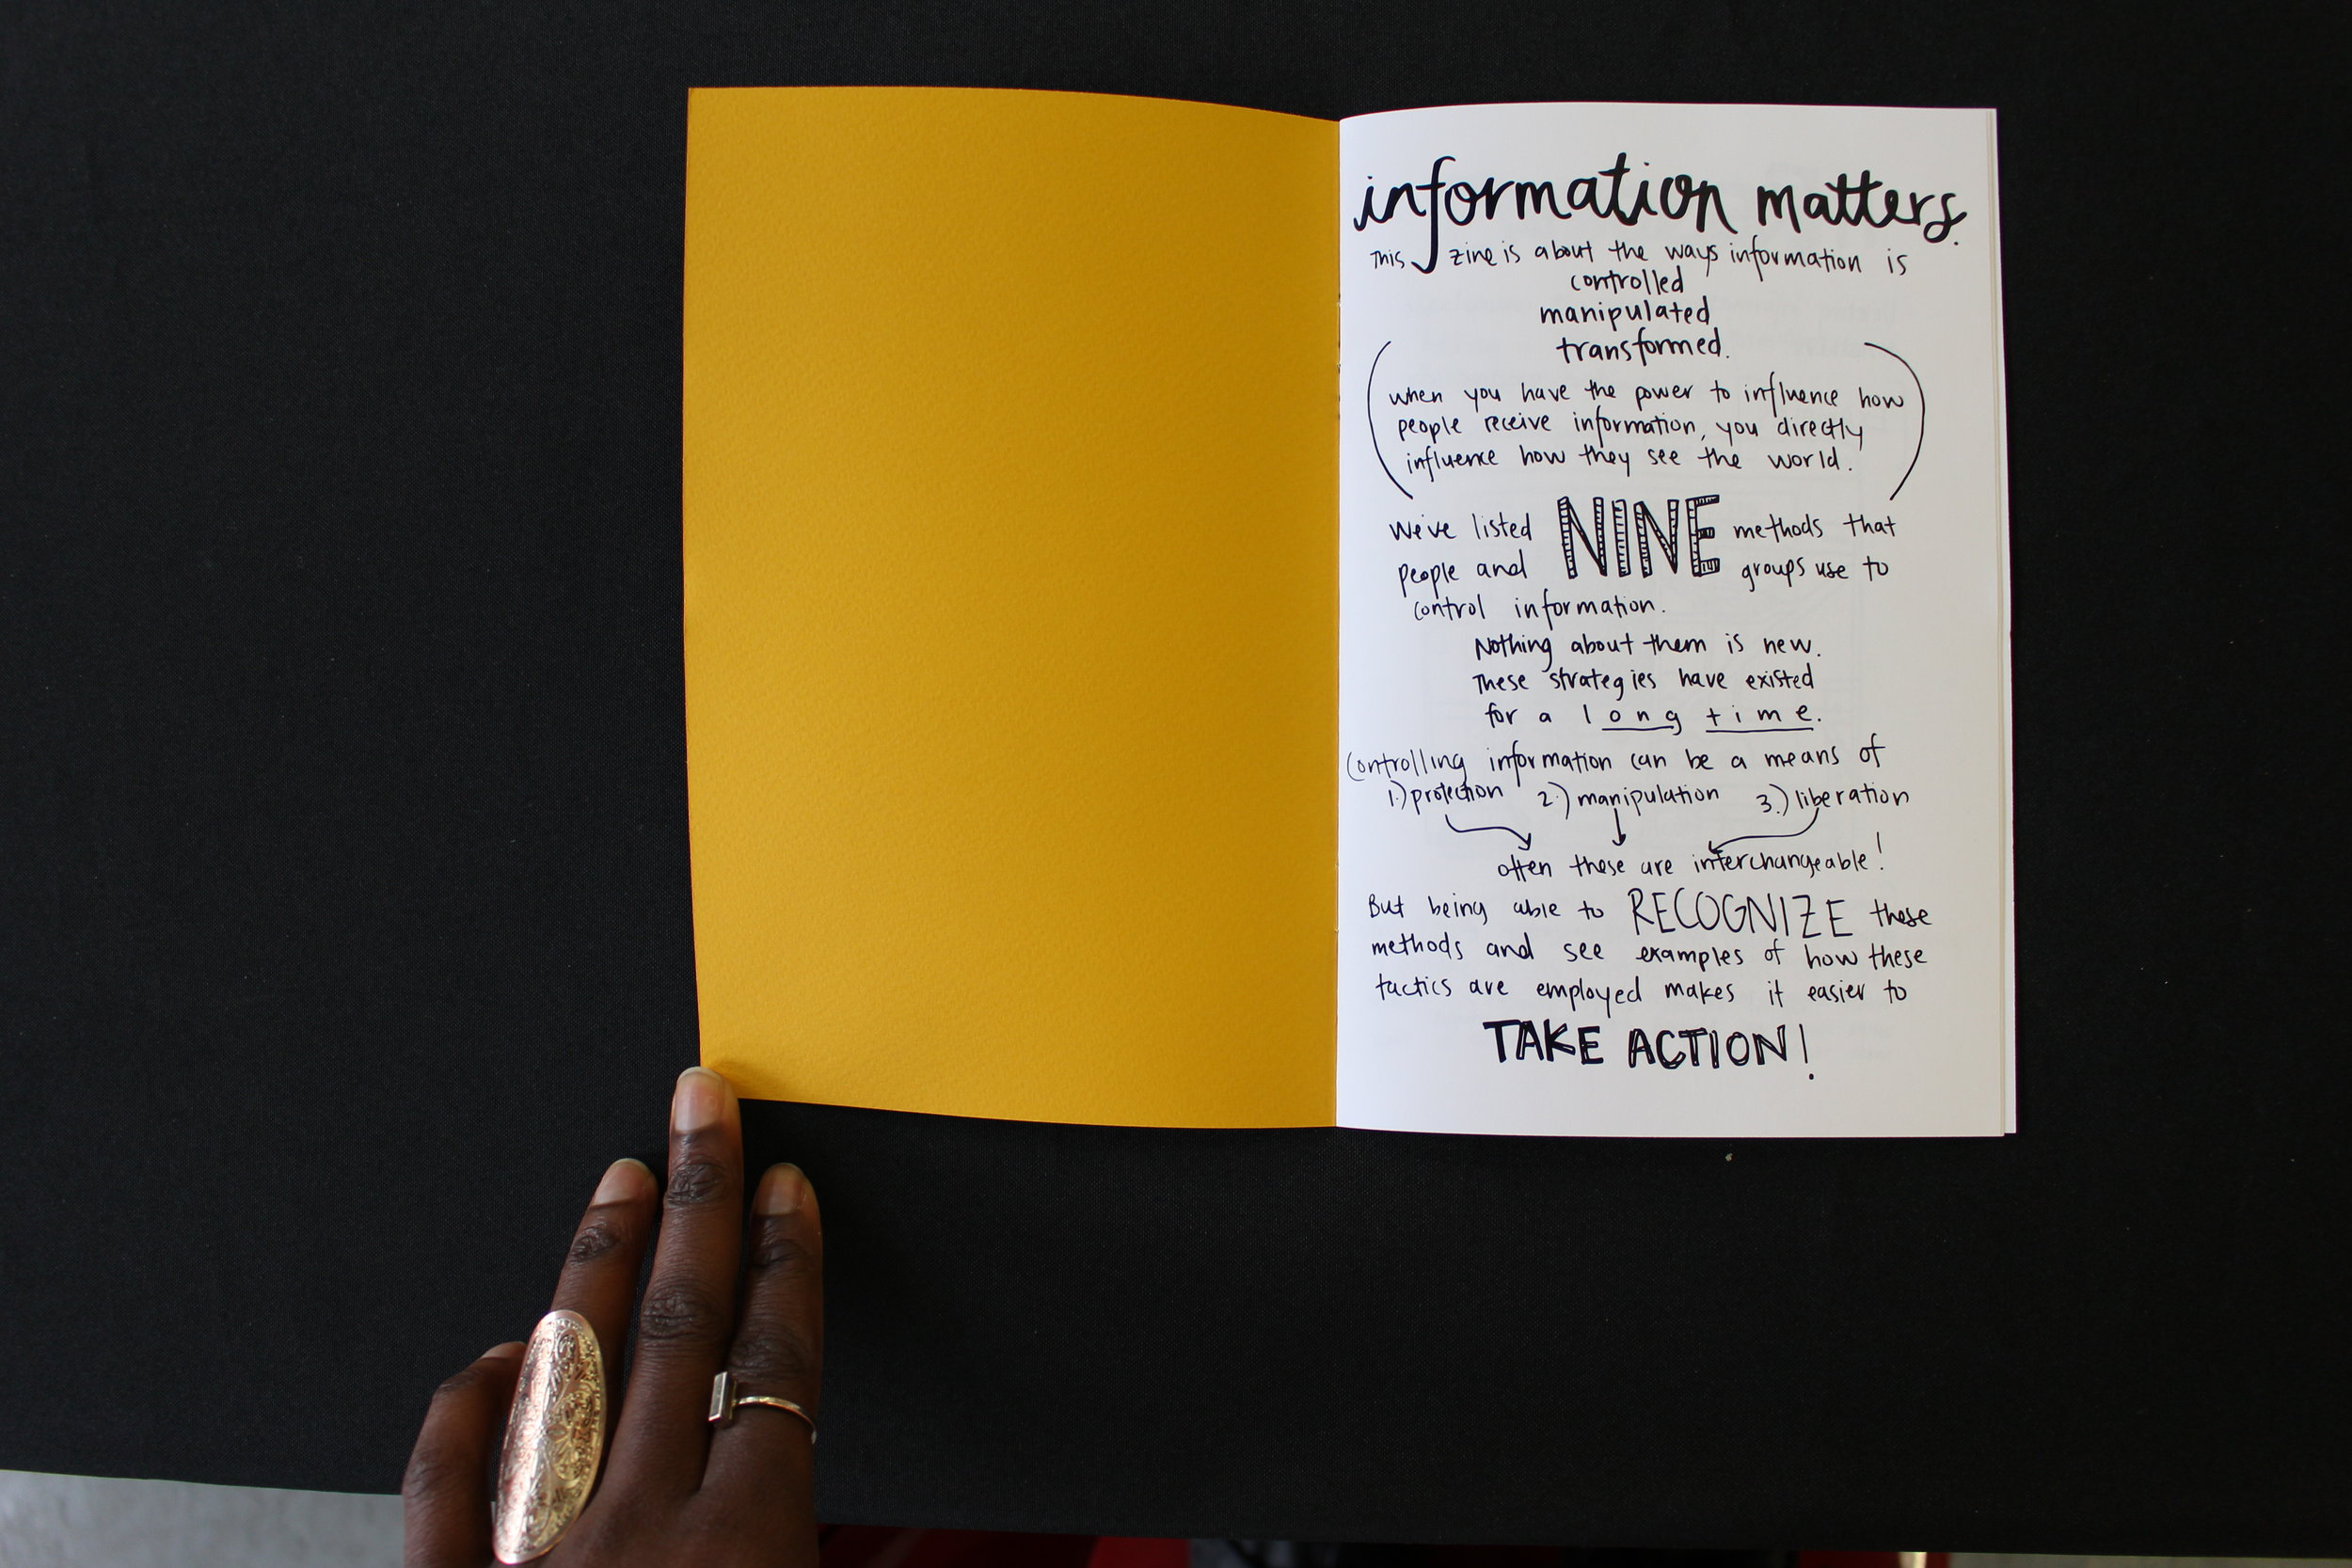 information matters.
This zine is about the ways information is
controlled
manipulated
transformed.
when you have the power to influence how
people receive information, you directly
influence how they see the world.
We've listed NINE methods that
people and groups use to
control information.
Nothing about them is new.
These strategies have existed
for a long time.
Controlling information can be a means of
1.) protection 2.) manipulation 3.) liberation
often these are interchangeable!
But being able to RECOGNIZE these
methods and see examples of how these
tactics are employed makes it easier to
TAKE ACTION!